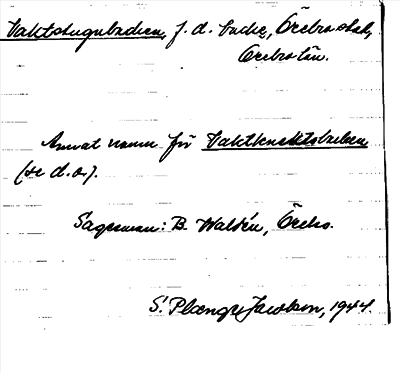 Vaktstugubacken, f.d. backe, Örebro stad,
Örebro län.
Annat namn för Vaktknektsbacken
(se d.o.).
Sagesman: B. Waldén, Örebro.
S. Plænge Jacobson, 1944.